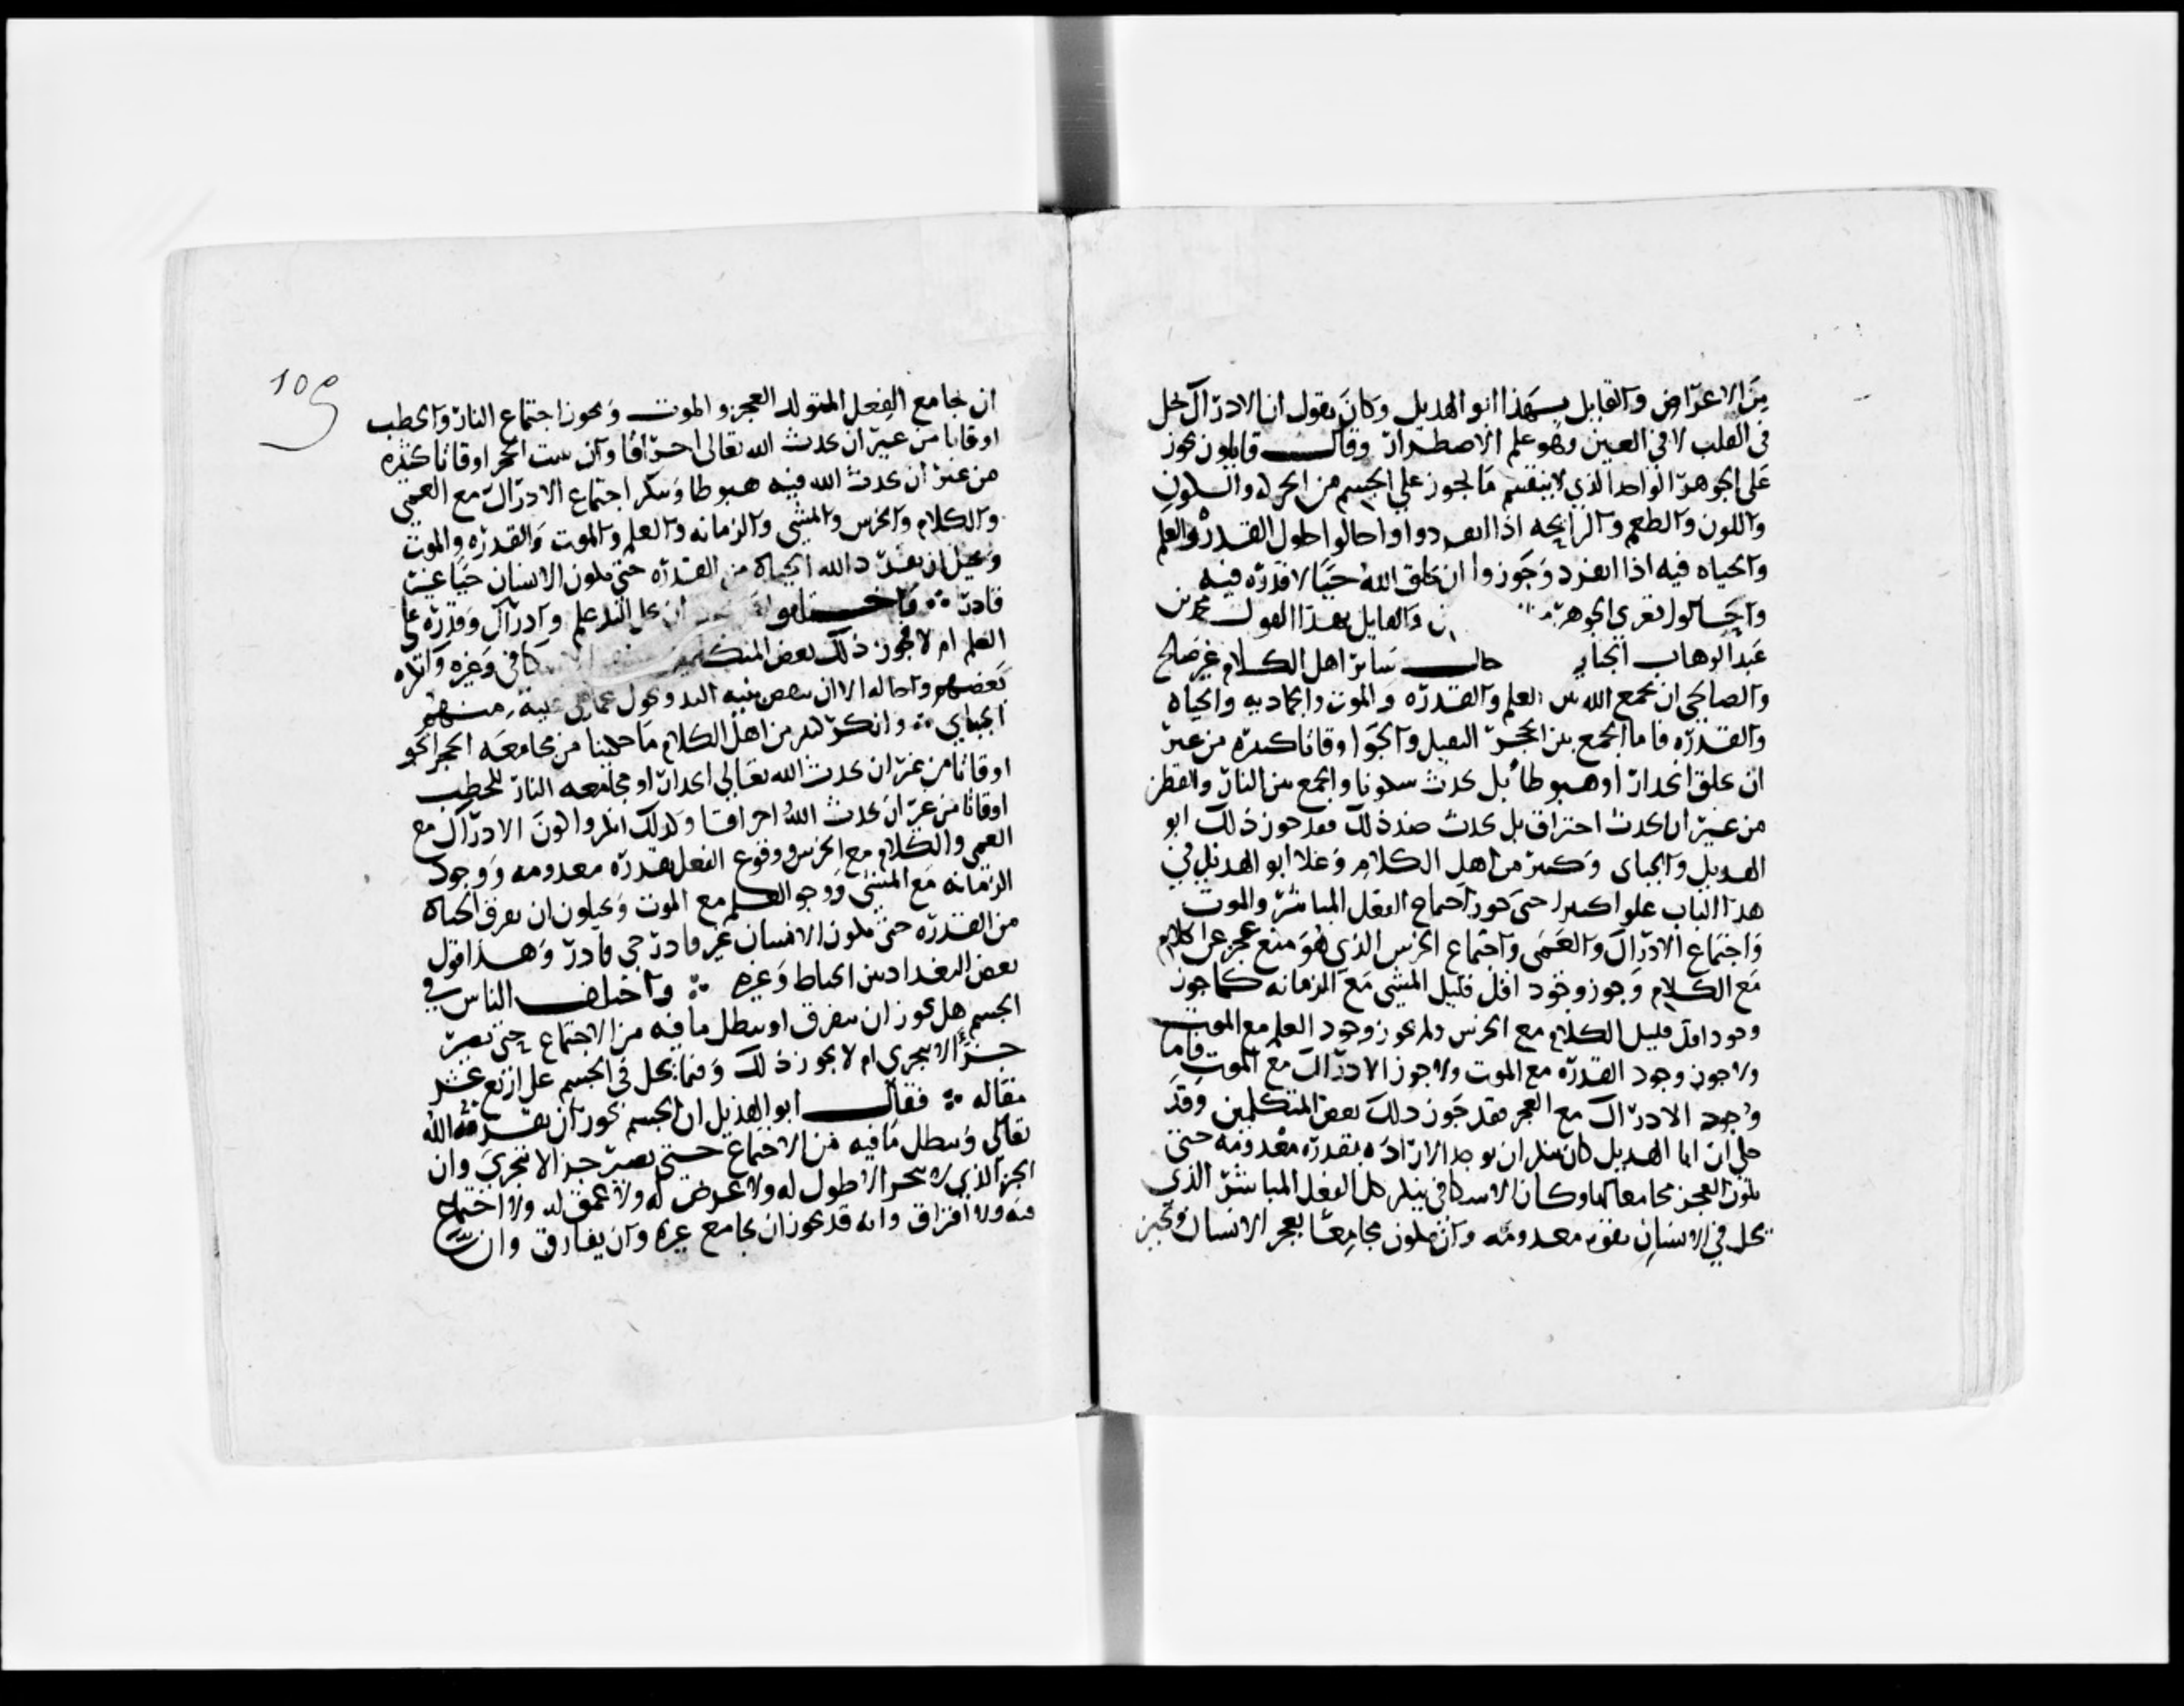 من الاعراض والقايل بهذا ابو الهذيل وكان يقول ان الادراك يحل
في القلب لا في العين وهو علم الاضطرار وقال قايلون يجوز
على الجوهر الواحد الذي لا ينقسم ما يجوز على الجسم من الحركه والسكون
واللون والطعم والرايحه اذا انفرد واحالوا حلول القدره والعلم
والحياه فيه اذا انفرد وجوزوا ان يخلق الله حيا لا قدره فيه
واحالوا تعري الجوهر والقايل بهذا القول محمد بن
عبد الوهاب الجباي سائر اهل الكلام غير صالح
والصالحي ان يجمع الله بين العلم والقدره والموت والجماديه والحياه
والقدره فاما الجمع بين الحجر الثقيل والجو اوقاتا كثيره من غير
ان يخلق انحدارا وهبوطا بل يحدث سكونا والجمع بين النار والقطن
من غير ان يحدث احتراق بل يحدث ضد ذلك فقد جوز ذلك ابو
الهذيل والجباي وكثير من اهل الكلام وغلا ابو الهذيل في
هذا الباب علوا كبيرا حتى جوز اجتماع الفعل المباشر والموت
واجتماع الادراك والعمى واجتماع الخرس الذي هو منع عجز عن الكلام
مع الكلام وجوز وجود اقل قليل المشي مع الزمانه كما جوز
وجود اقل قليل الكلام مع الخرس ولم يجوز وجود العلم مع الموت
ولا جوز وجود القدره مع الموت ولا جوز الادراك مع الموت فاما
وجود الادراك مع العجز فقد جوز ذلك بعض المتكلمين وقد
حكي ان ابا الهذيل كان ينكر ان يوجد الاراده بقدره معدومه حتى
يكون العجز مجامعا لها وكان الاسكافي ينكر كل الفعل المباشر الذي
يحل في الانسان بقوه معدومه وان يكون مجامعا بعجز الانسان ويجيز
109
ان يجامع الفعل المتولد العجز والموت ويجوز اجتماع النار والحطب
اوقاتا من غير ان يحدث الله تعالى احتراقا وان يثبت الحجر اوقاتا كثيره
من غير ان يحدث الله فيه هبوطا وينكر اجتماع الادراك مع العمى
والكلام والخرس والمشي والزمانه والعلم والموت والقدره والموت
ويحيل ان يفرد الله الحياه من القدره حتى يكون الانسان حيا غير
قادر ∴ واختلفوا ان يحل اليد علم وادراك وقدره على
العلم ام لا يجوز ذلك بعض المتكلمين الاسكافي وغيره وانكره
بعضهم واحاله الا ان ينقض بنيه اليد وتحول عما هي عليه منهم
الجباي ∴ وانكر كثير من اهل الكلام ما حكينا من مجامعه الحجر الجو
اوقاتا من غير ان يحدث الله تعالى انحدارا ومجامعه النار للحطب
اوقاتا من غير ان يحدث الله احراقا وكذلك انكروا كون الادراك مع
العمى والكلام مع الخرس ووقوع الفعل بقدره معدومه ووجود
الزمانه مع المشي ووجود العلم مع الموت ويحيلون ان يفرق الحياه
من القدره حتى يكون الانسان غير قادر حي قادر وهذا قول
بعض البغداديين الخياط وغيره ∴ واختلف الناس في
الجسم هل يجوز ان يتفرق او يبطل ما فيه من الاجتماع حتى يصير
جزءا لا يتجزى ام لا يجوز ذلك وفيما يحل في الجسم على اربع عشر
مقاله ∴ فقال ابو الهذيل ان الجسم يجوز ان يفرقه الله
تعالى ويبطل ما فيه من الاجتماع حتى يصير جزا لا يتجزى وان
الجزا الذي لا يتجزا لا طول له ولا عرض له ولا عمق له ولا اجتماع
فيه ولا افتراق وانه قد يجوز ان يجامع غيره وان يفارق وان